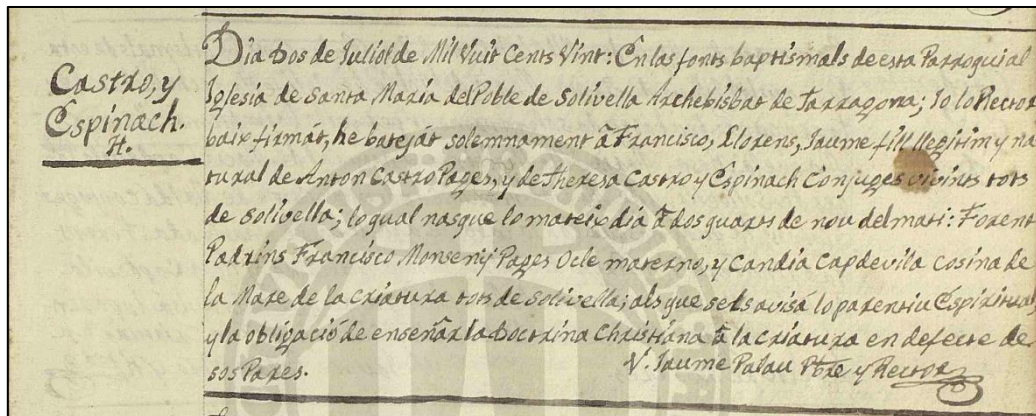 Castro, y
Espinach.
H.
Dia Dos de Juliol de Mil Vuit Cents Vint: En las fonts baptismals de esta Parroquial
Iglesia de Santa Maria del Poble de Solivella Archebisbat de Tarragona; Jo lo Rector
baix firmát, he bateját solemnament â Francisco, Llorens, Jaume fill llegitim y na
tural de Anton Castro Pages, y de Theresa Castro y Espinach Conjuges vivints tots
de Solivella; lo qual nasque lo mateix dia â dos quarts de nou del mati: Forent
Padrins Francisco Monseny Pages Ocle materno, y Candia Capdevila cosina de
la Mare de la criatura tots de Solivella; als que sels avisá lo parentiu Espiritual
y la obligació de enseñar la Doctrina Christiana â la criatura en defecte de
sos Pares.
V. Jaume Palau Pbre y Rector